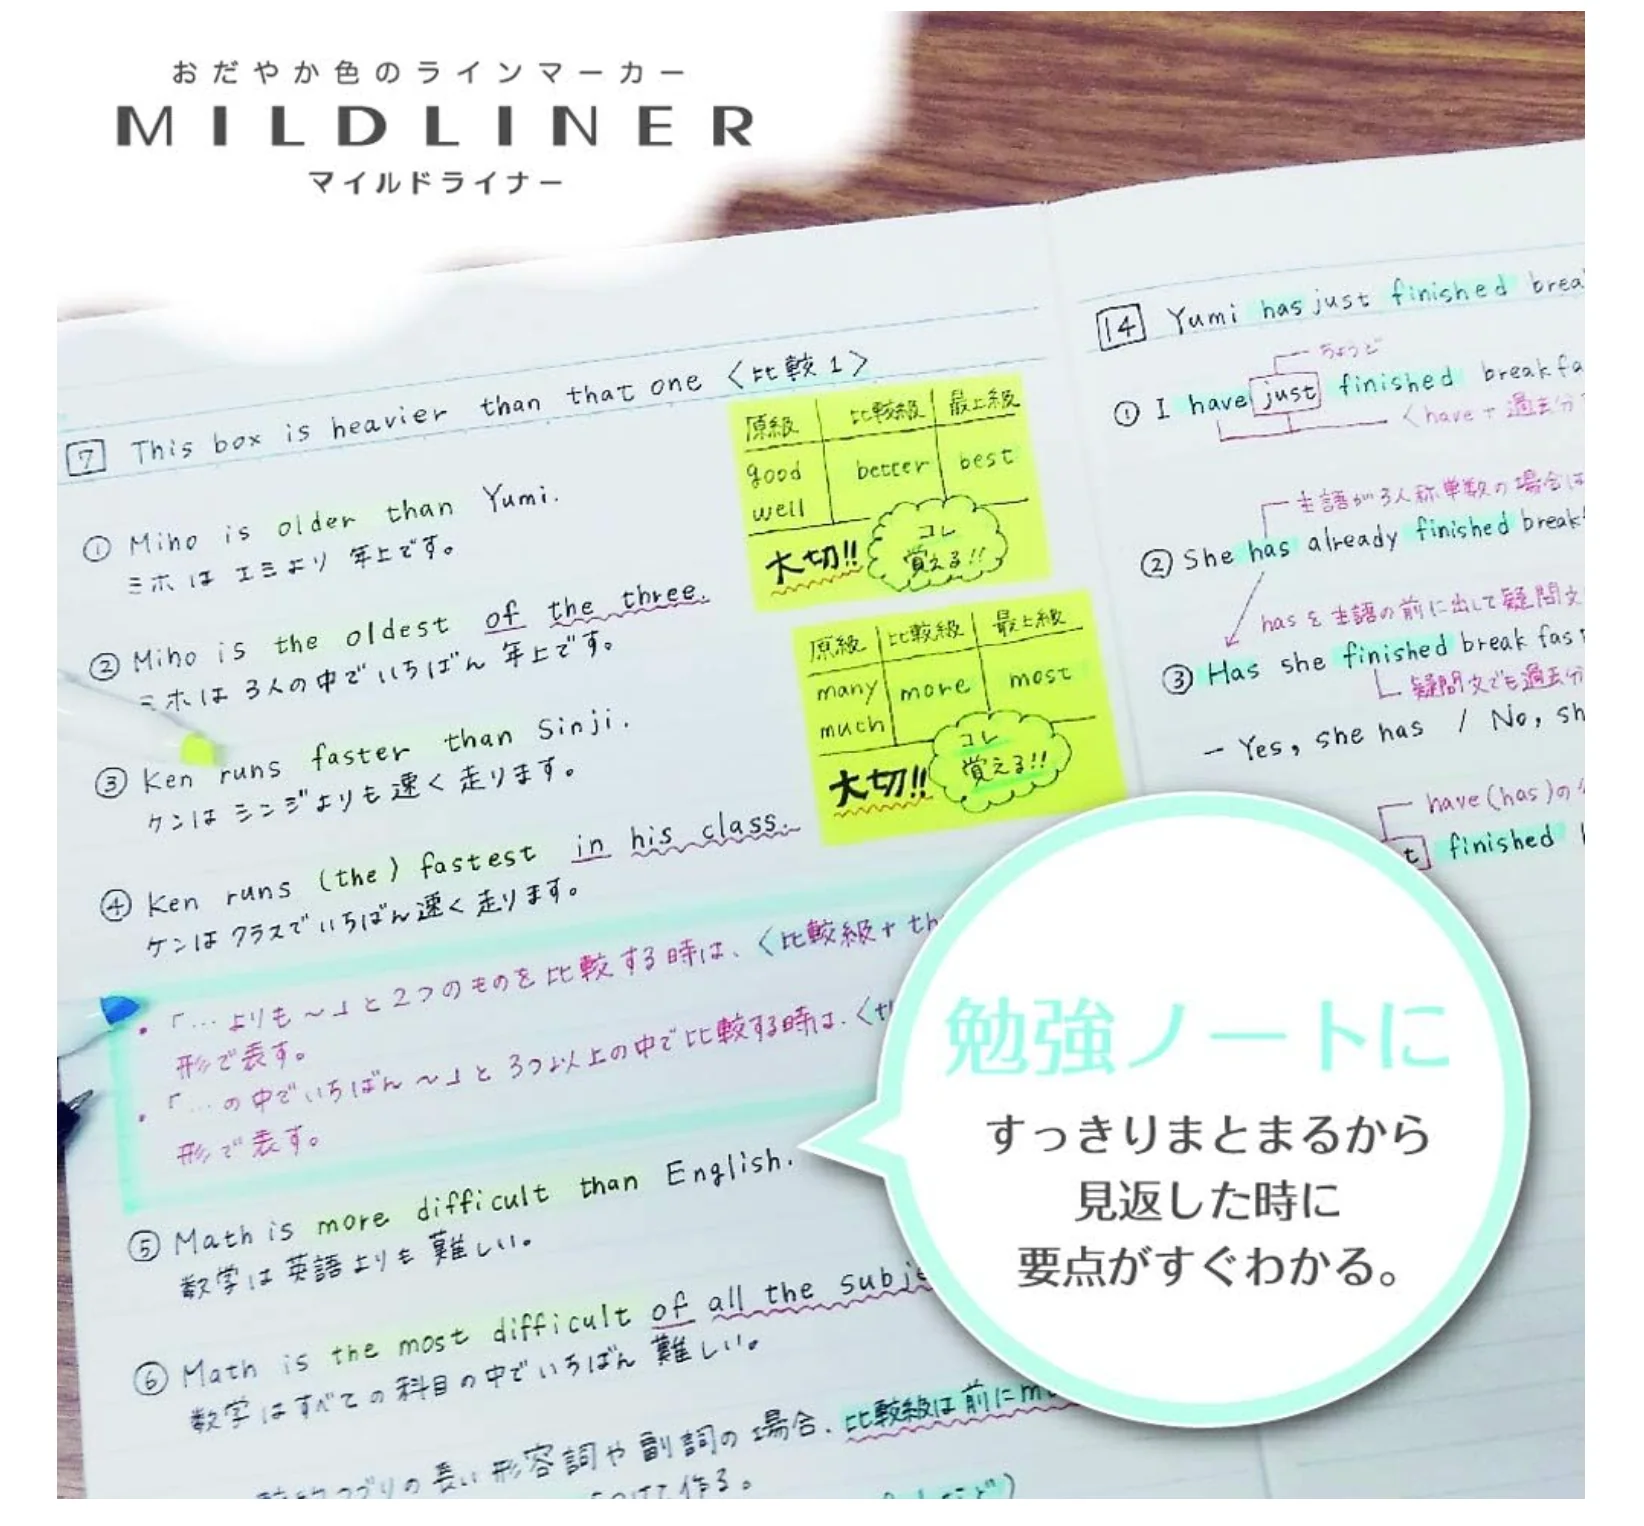 おだやか色のラインマーカー
MILDLINER
マイルドライナー
7 This box is heavier than that one 〈比較1〉
① Miho is older than Yumi.
ミホは エミより 年上です。
② Miho is the oldest of the three.
ミホは 3人の中でいちばん 年上です。
③ Ken runs faster than Sinji.
ケンは シンジよりも 速く 走ります。
④ Ken runs (the) fastest in his class.
ケンは クラスでいちばん速く 走ります。
・「…よりも〜」と2つのものを比較する時は、〈比較級+th
形で表す。
・「…の中でいちばん〜」と3つ以上の中で比較する時は、〈t
形で表す。
⑤ Math is more difficult than English.
数学は英語よりも 難しい。
⑥ Math is the most difficult of all the subje
数学はすべての科目の中でいちばん 難しい。
つづりの長い形容詞や副詞の場合、比較級は前にm
作る。
原級 比較級 最上級
good better best
well
大切!! コレ
覚える!!
原級 比較級 最上級
many more most
much
大切!! コレ
覚える!!
14 Yumi has just finished brea
ちょうど
① I have just finished breakfa
〈have+過去分
主語が3人称単数の場合は
② She has already finished break
hasを主語の前に出して疑問文
③ Has she finished breakfas
疑問文でも過去分
― Yes, she has / No, sh
have(has)の
t finished
勉強ノートに
すっきりまとまるから
見返した時に
要点がすぐわかる。